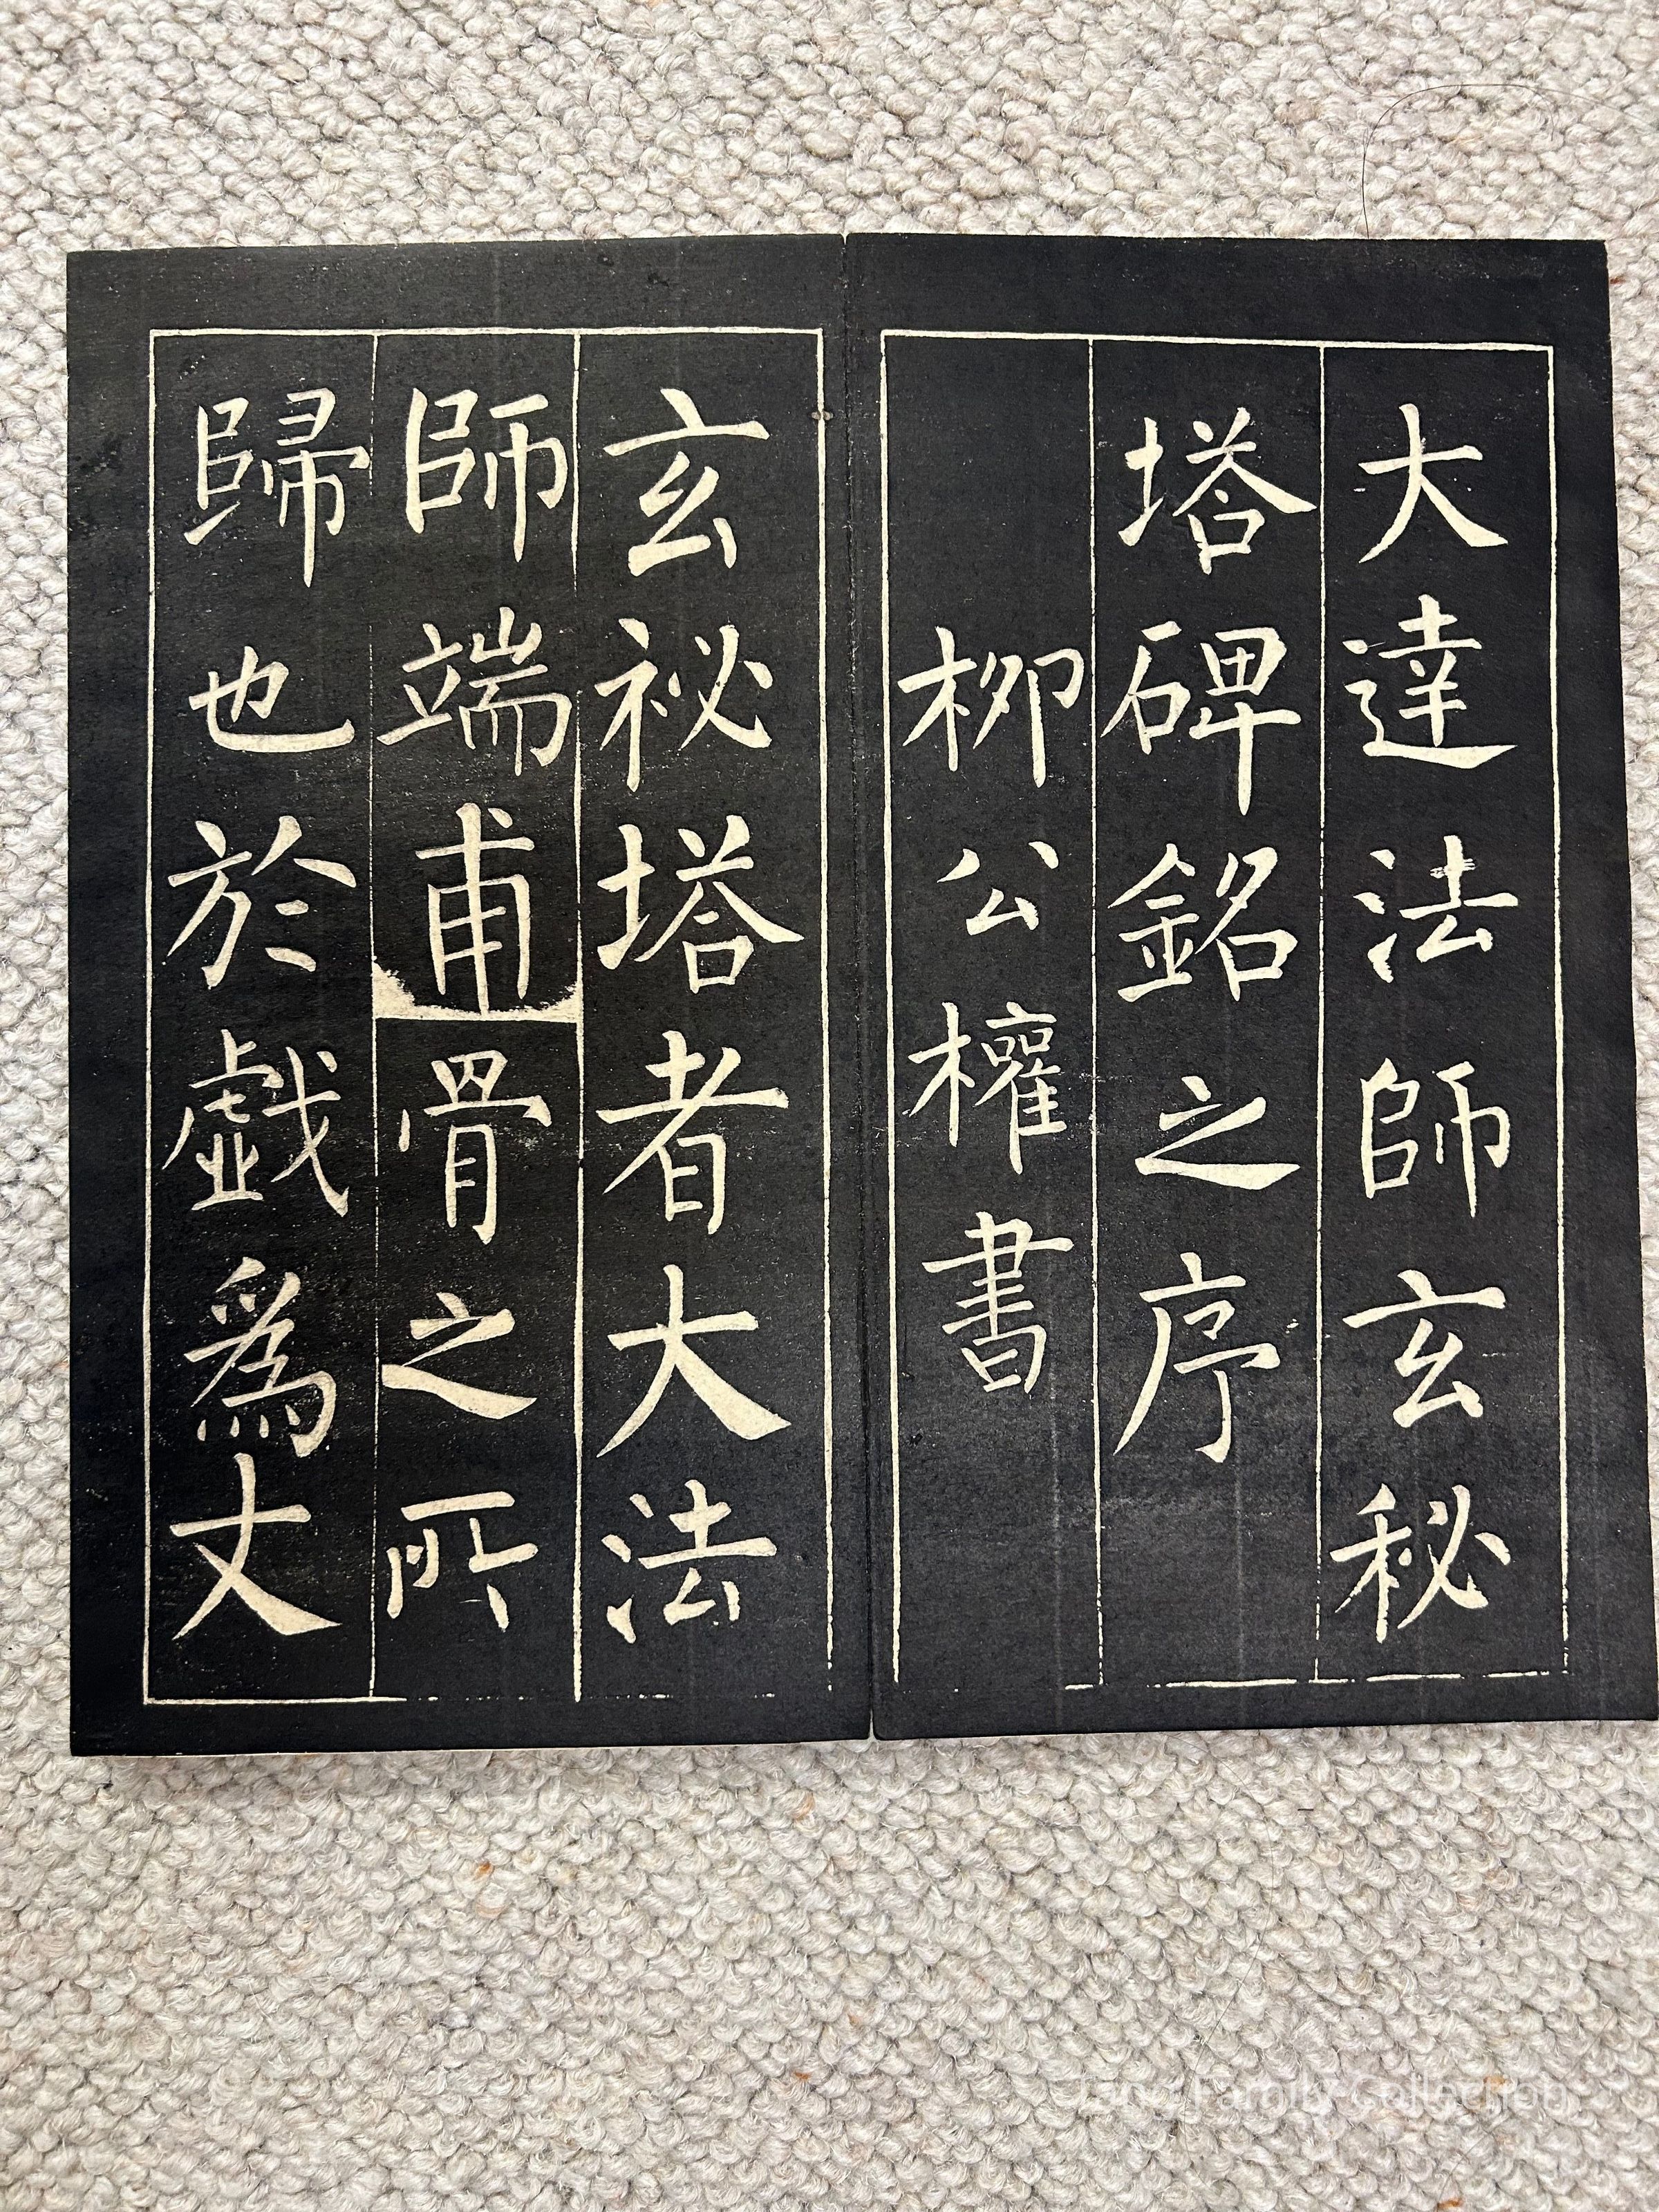 大達法師玄秘
塔碑銘之序
柳公權書
玄祕塔者大法
師端甫骨之所
歸也於戲爲丈
Tang Family Collection